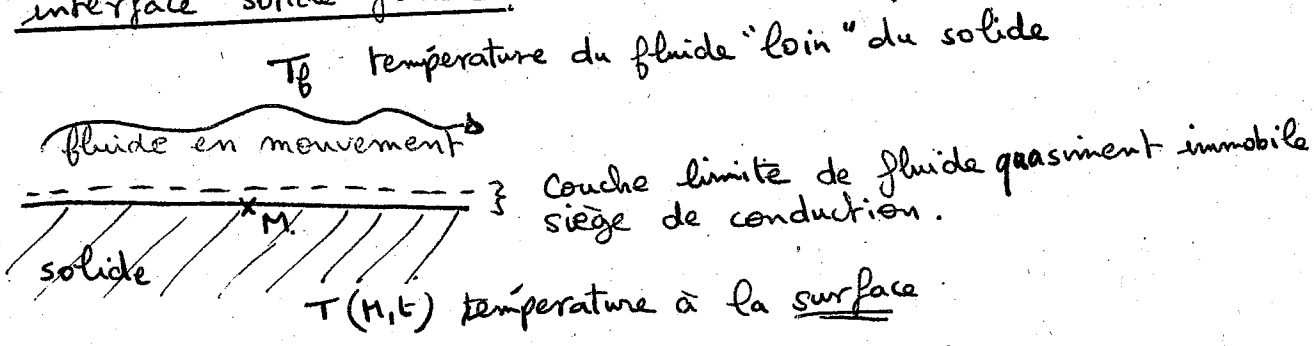 interface solide
T_f température du fluide "loin" du solide
fluide en mouvement
} Couche limite de fluide quasiment immobile
siège de conduction.
M
solide
T(M,t) température à la surface.